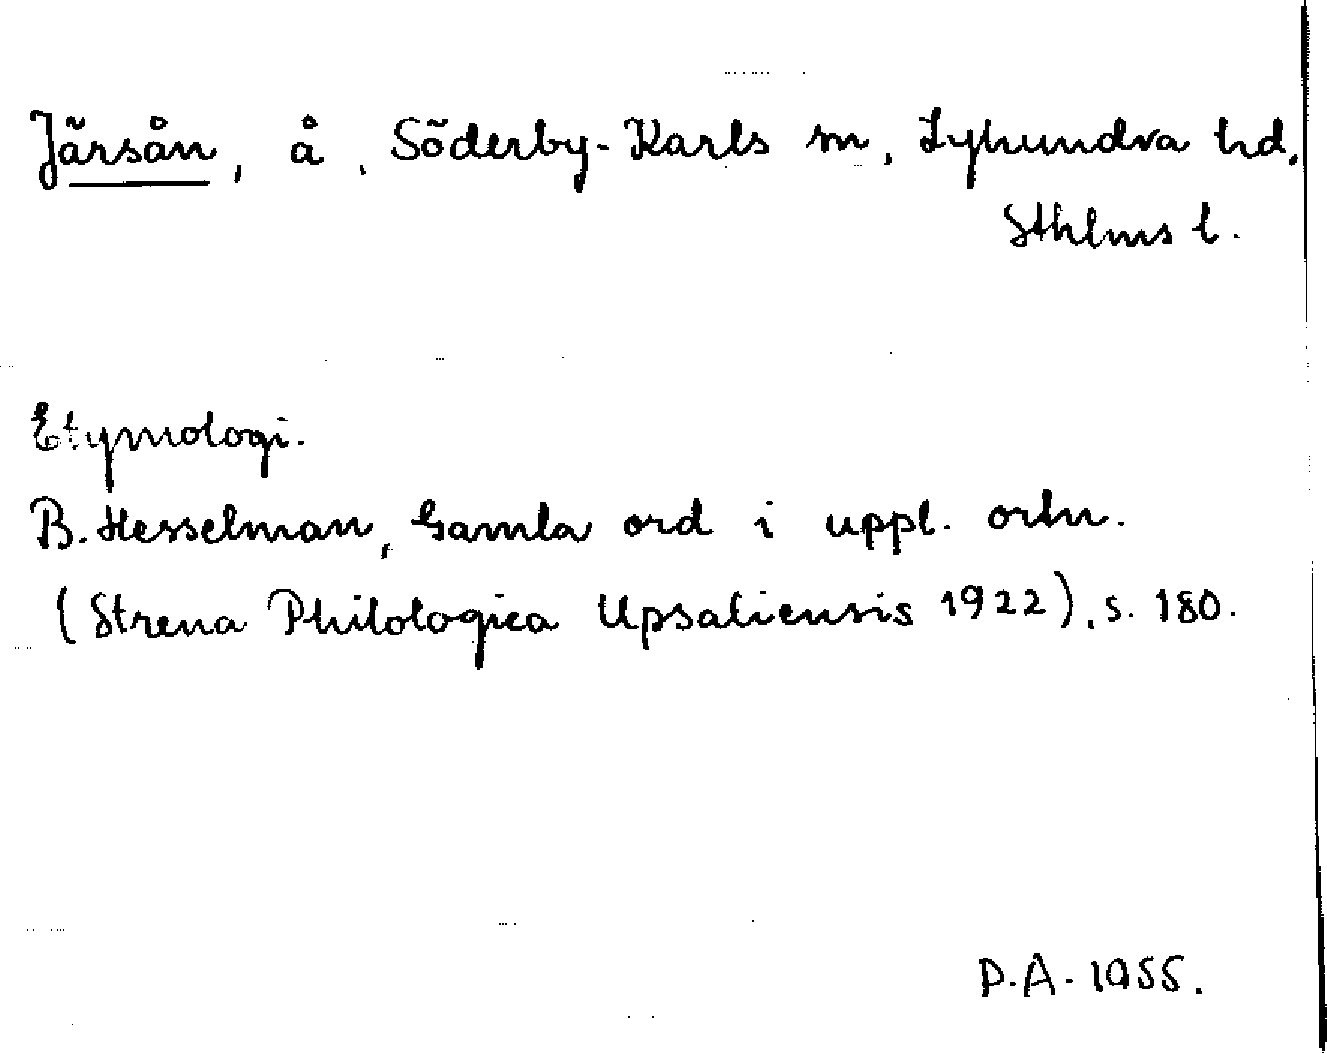 Järsån, å, Söderby-Karls sn, Lyhundra hd,
Sthlms l.
Etymologi.
B. Hesselman, Gamla ord i uppl. ortn.
(Strena Philologica Upsaliensis 1922), s. 180.
P.A. 1955.